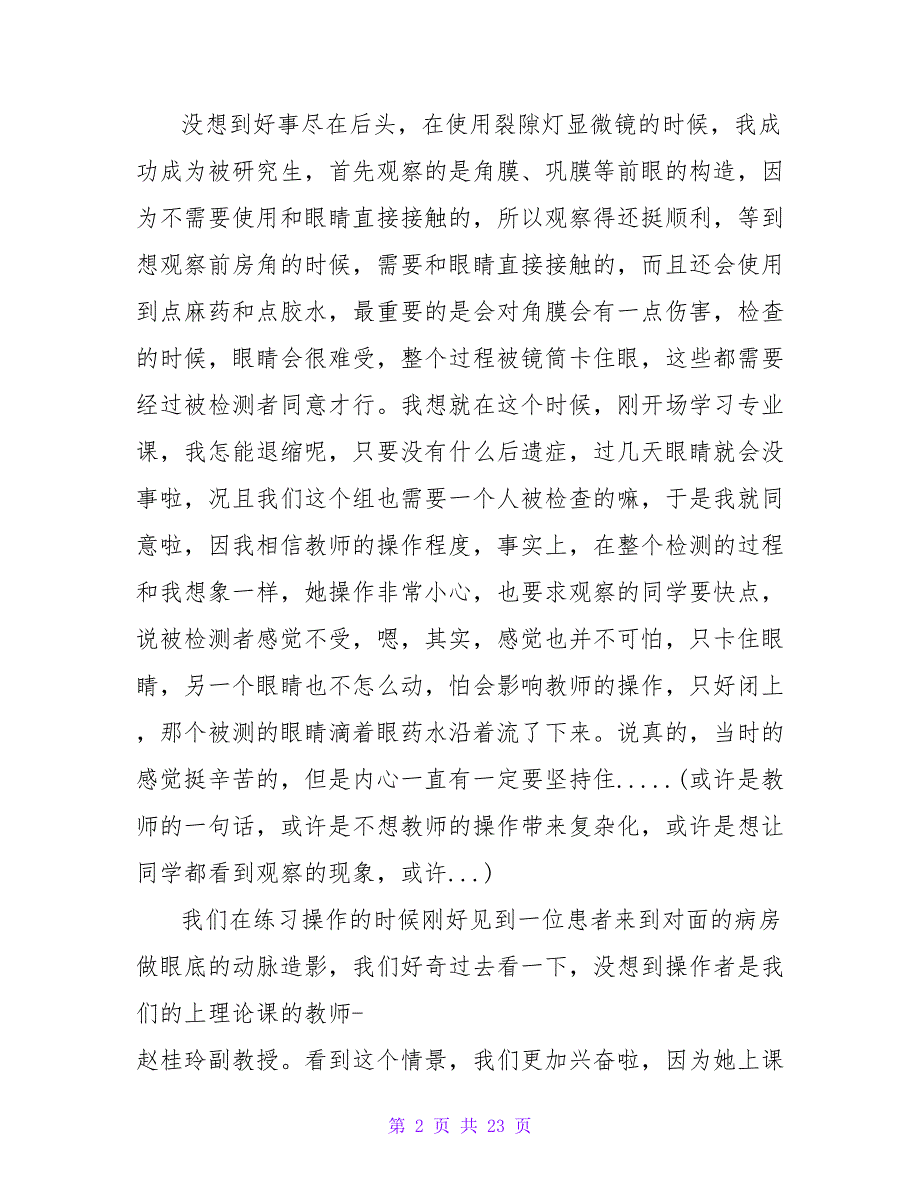 没想到好事尽在后头，在使用裂隙灯显微镜的时候，我成
功成为被研究生，首先观察的是角膜、巩膜等前眼的构造，因
为不需要使用和眼睛直接接触的，所以观察得还挺顺利，等到
想观察前房角的时候，需要和眼睛直接接触的，而且还会使用
到点麻药和点胶水，最重要的是会对角膜会有一点伤害，检查
的时候，眼睛会很难受，整个过程被镜筒卡住眼，这些都需要
经过被检测者同意才行。我想就在这个时候，刚开场学习专业
课，我怎能退缩呢，只要没有什么后遗症，过几天眼睛就会没
事啦，况且我们这个组也需要一个人被检查的嘛，于是我就同
意啦，因我相信教师的操作程度，事实上，在整个检测的过程
和我想象一样，她操作非常小心，也要求观察的同学要快点，
说被检测者感觉不受，嗯，其实，感觉也并不可怕，只卡住眼
睛，另一个眼睛也不怎么动，怕会影响教师的操作，只好闭上
，那个被测的眼睛滴着眼药水沿着流了下来。说真的，当时的
感觉挺辛苦的，但是内心一直有一定要坚持住.....(或许是教
师的一句话，或许是不想教师的操作带来复杂化，或许是想让
同学都看到观察的现象，或许...)
我们在练习操作的时候刚好见到一位患者来到对面的病房
做眼底的动脉造影，我们好奇过去看一下，没想到操作者是我
们的上理论课的教师-
赵桂玲副教授。看到这个情景，我们更加兴奋啦，因为她上课
第 2 页 共 23 页